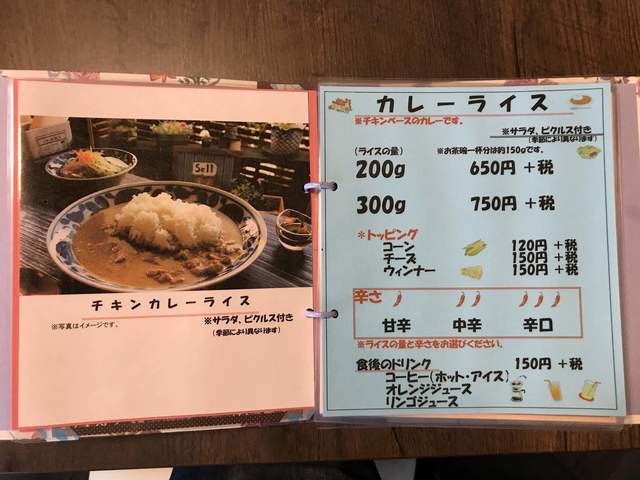 Sell
チキンカレーライス
※サラダ、ピクルス付き
※写真はイメージです。
(季節により異なります)
カレーライス
※チキンベースのカレーです。
※サラダ、ピクルス付き
(季節により異なります)
(ライスの量)
※お茶碗一杯分は約150gです。
200g 650円 +税
300g 750円 +税
*トッピング
コーン 120円 +税
チーズ 150円 +税
ウィンナー 150円 +税
辛さ
甘辛 中辛 辛口
※ライスの量と辛さをお選びください。
食後のドリンク 150円 +税
コーヒー(ホット・アイス)
オレンジジュース
リンゴジュース